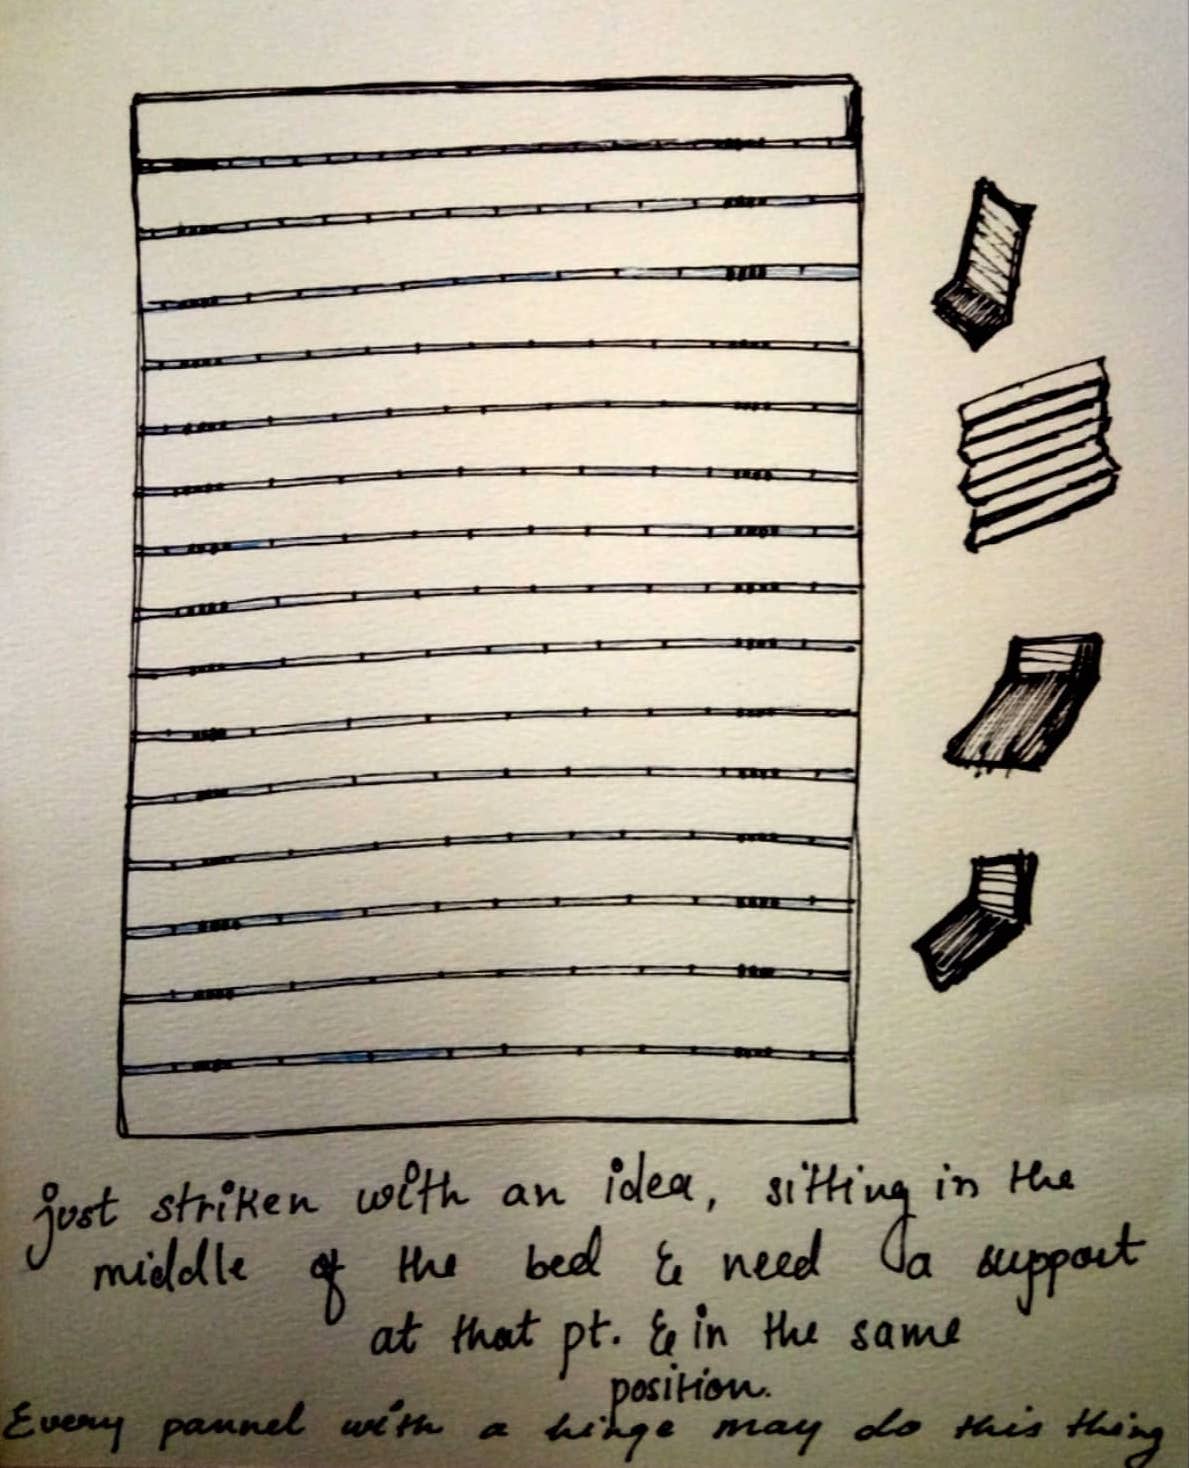 just striken with an idea, sitting in the
middle of the bed & need a support
at that pt. & in the same
position.
Every pannel with a hinge may do this thing